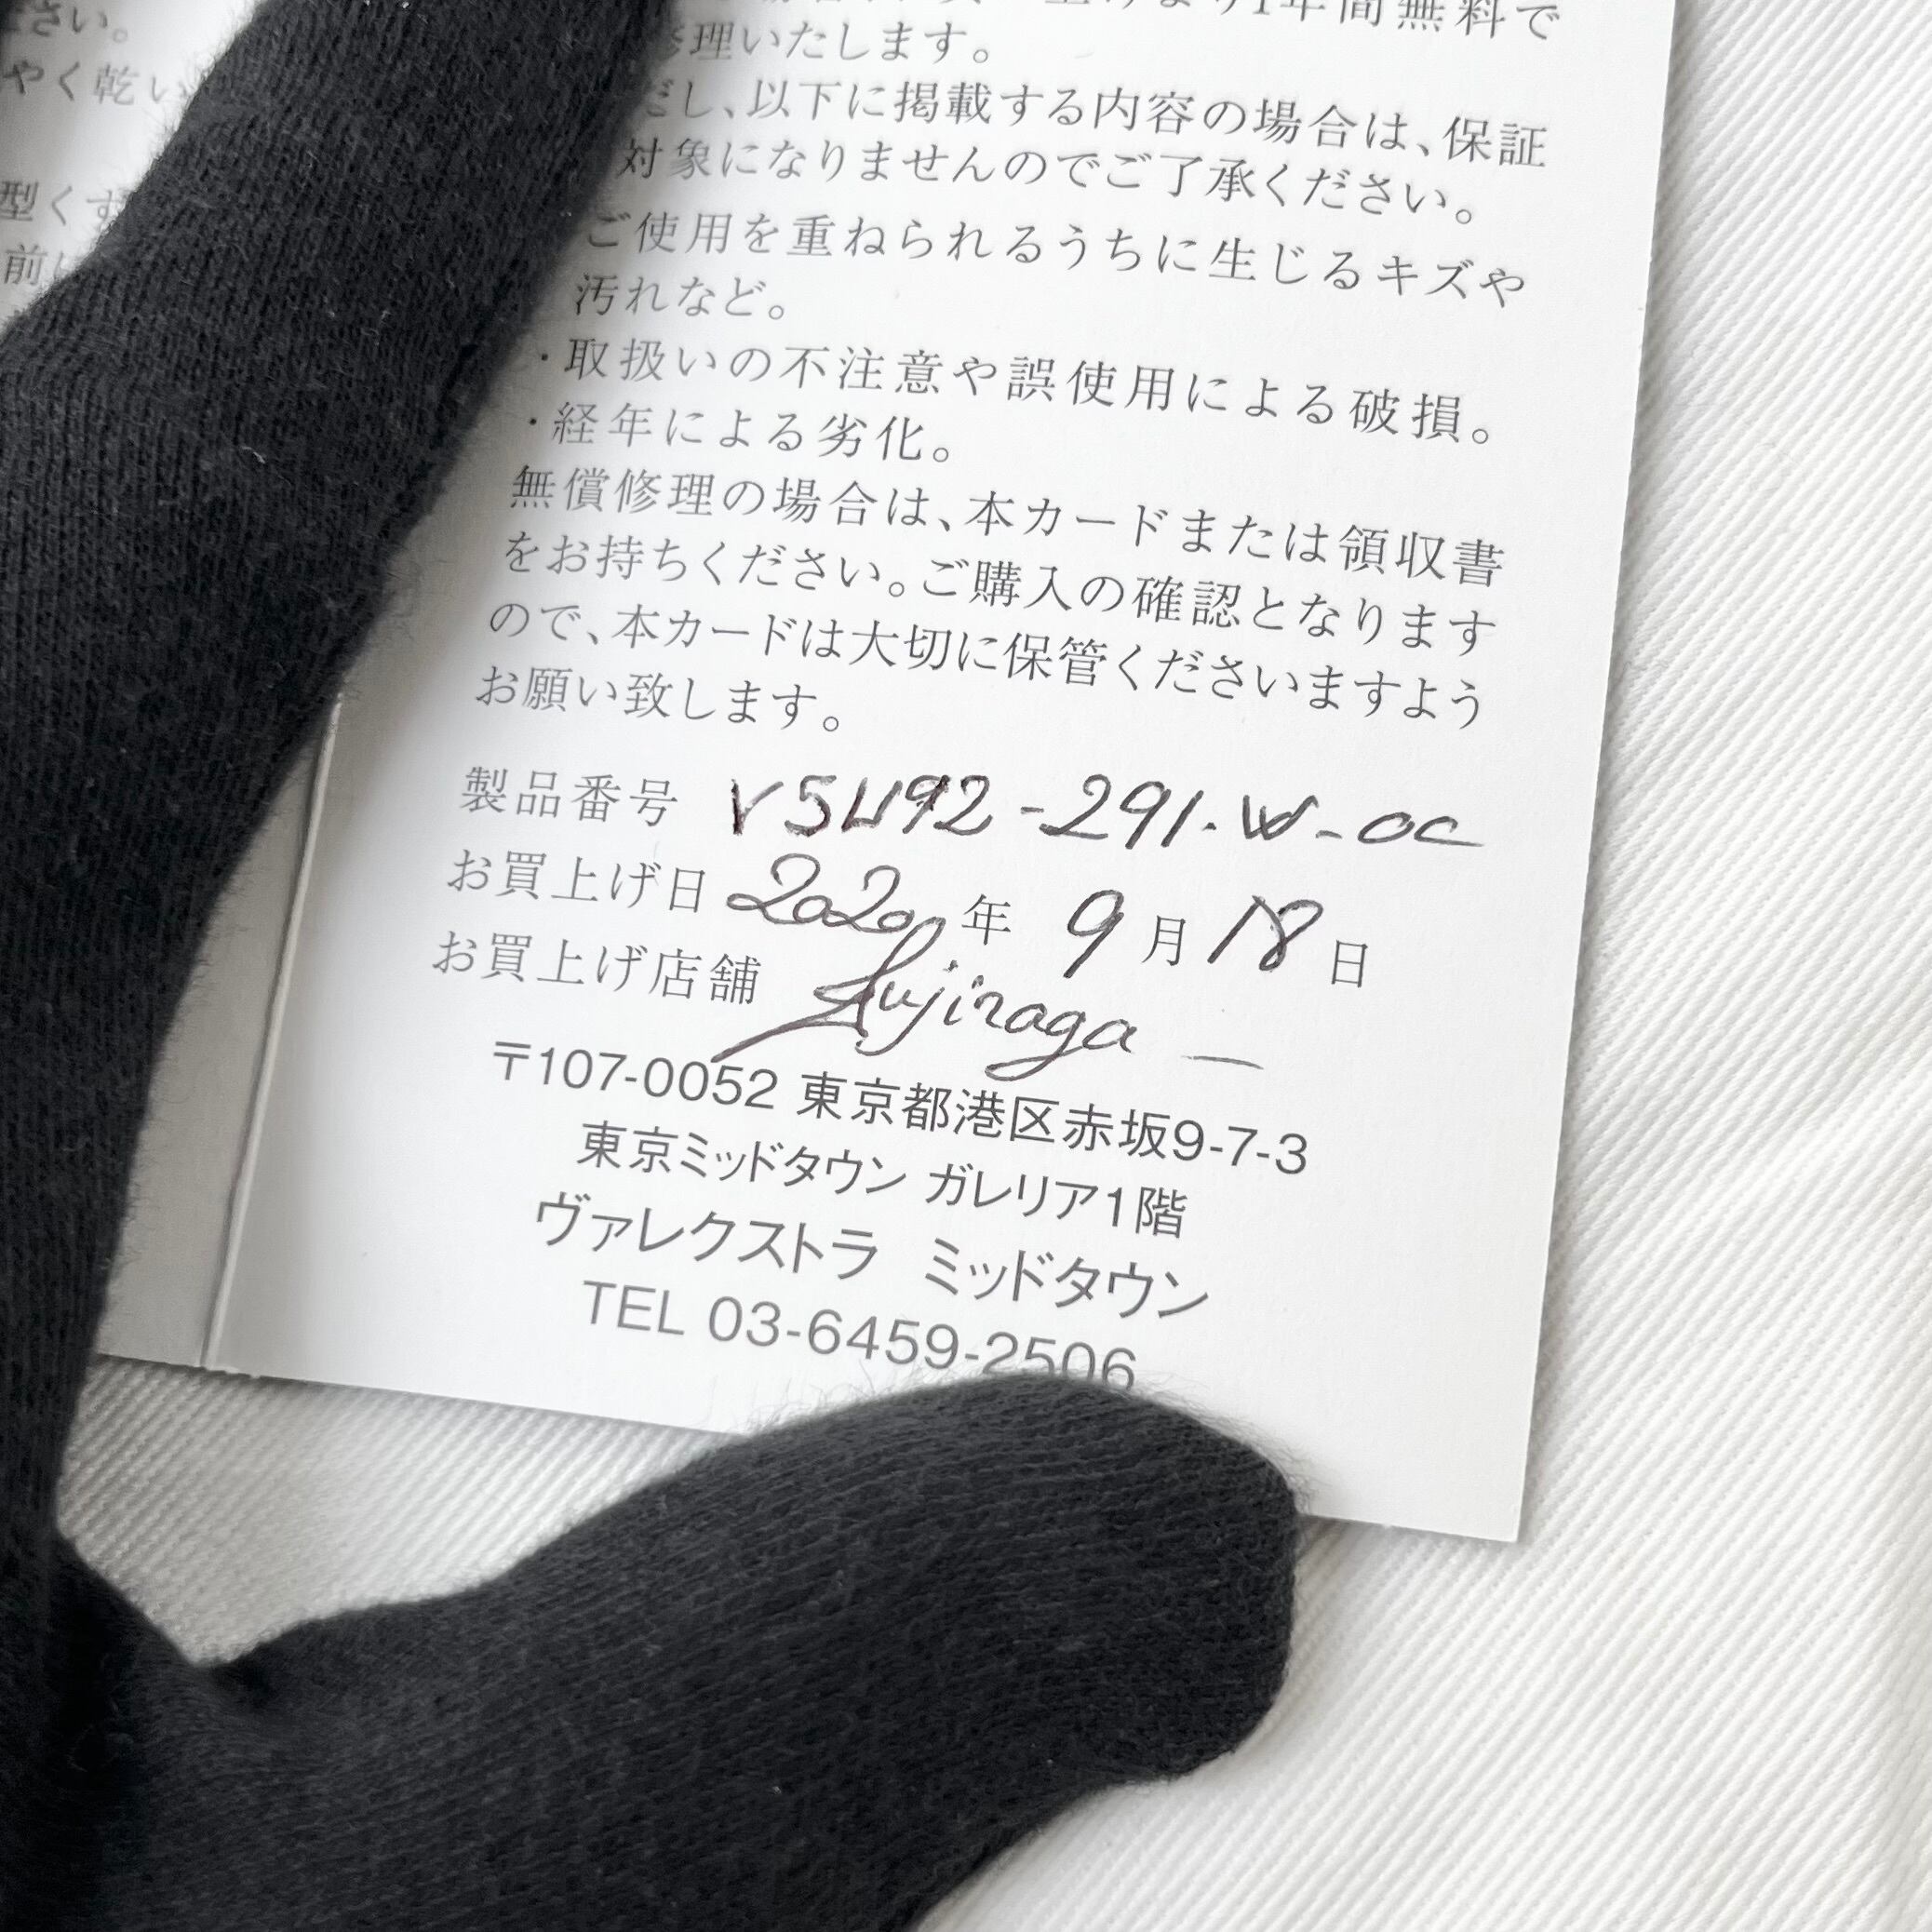 さい。
やく乾い
型くず
前に
1年間無料で
修理いたします。
だし、以下に掲載する内容の場合は、保証
対象になりませんのでご了承ください。
ご使用を重ねられるうちに生じるキズや
汚れなど。
・取扱いの不注意や誤使用による破損。
・経年による劣化。
無償修理の場合は、本カードまたは領収書
をお持ちください。ご購入の確認となります
ので、本カードは大切に保管くださいますよう
お願い致します。
製品番号 V5U92-291-W-OC
お買上げ日 2020 年 9 月 18 日
お買上げ店舗
〒107-0052 東京都港区赤坂9-7-3
東京ミッドタウン ガレリア1階
ヴァレクストラ ミッドタウン
TEL 03-6459-2506